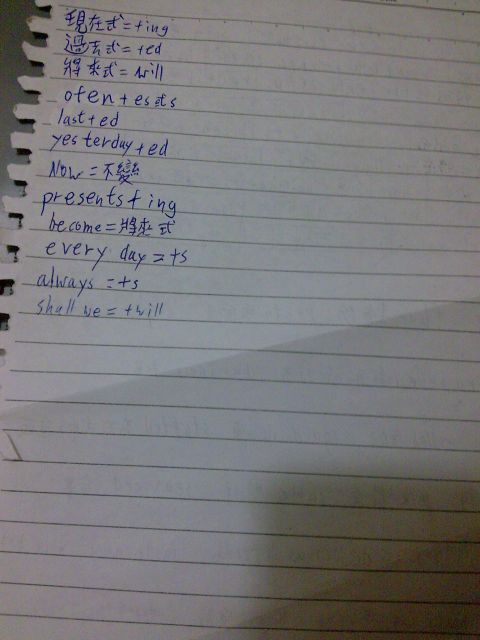 現在式=+ing
過去式=+ed
將來式=will
ofen+es或s
last+ed
yesterday+ed
Now=不變
presents+ing
become=將來式
every day=+s
always=+s
shall we=+will